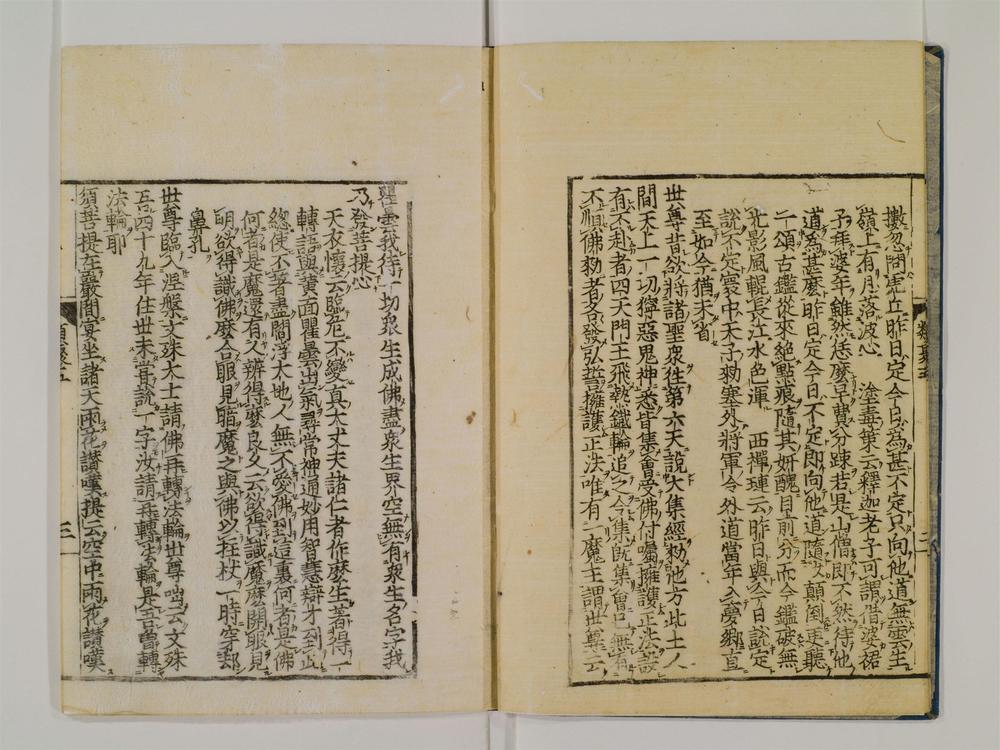 擻忽問虎丘昨日定今日為甚不定只向他道無雲生
嶺上有月落波心　塗毒策云釋迦老子可謂借婆裙
子拜婆年雖然恁麼早費分疎若是山僧即不然待他
道為甚麼昨日定今日不定即向他道隨汝顛倒更聽
一頌古鑑從來絕點痕隨其妍醜目前分而今鑑破無
光影風輥長江水色渾　西禪璉云昨日與今日說定
說不定寰中天子勅塞外將軍令外道當年入夢鄉直
至如今猶未省
世尊昔欲將諸聖眾徃第六天說大集經勅他方此土人
間天上一切獰惡鬼神悉皆集會受佛付囑擁護正法設
有不赴者四天門王飛熱鐵輪追之令集既集會已無有
不順佛勅者各發弘誓擁護正法唯有一魔王謂世尊云
瞿雲我待一切眾生成佛盡眾生界空無有眾生名字我
乃發菩提心
天衣懷云臨危不變真大丈夫諸仁者作麼生著得一
轉語與黃面瞿曇出氣尋常神通妙用智慧辯才到此
總使不著盡閻浮大地人無不愛佛到這裏何者是佛
何者是魔還有人辨得麼良久云欲得識魔麼開眼見
明欲得識佛麼合眼見暗魔之與佛以拄杖一時穿却
鼻孔
世尊臨入涅槃文殊大士請佛再轉法輪世尊咄云文殊
吾四十九年住世未嘗說一字汝請再轉法輪是吾曾轉
法輪耶
須菩提在巖間宴坐諸天雨花讚嘆提云空中雨花讚嘆